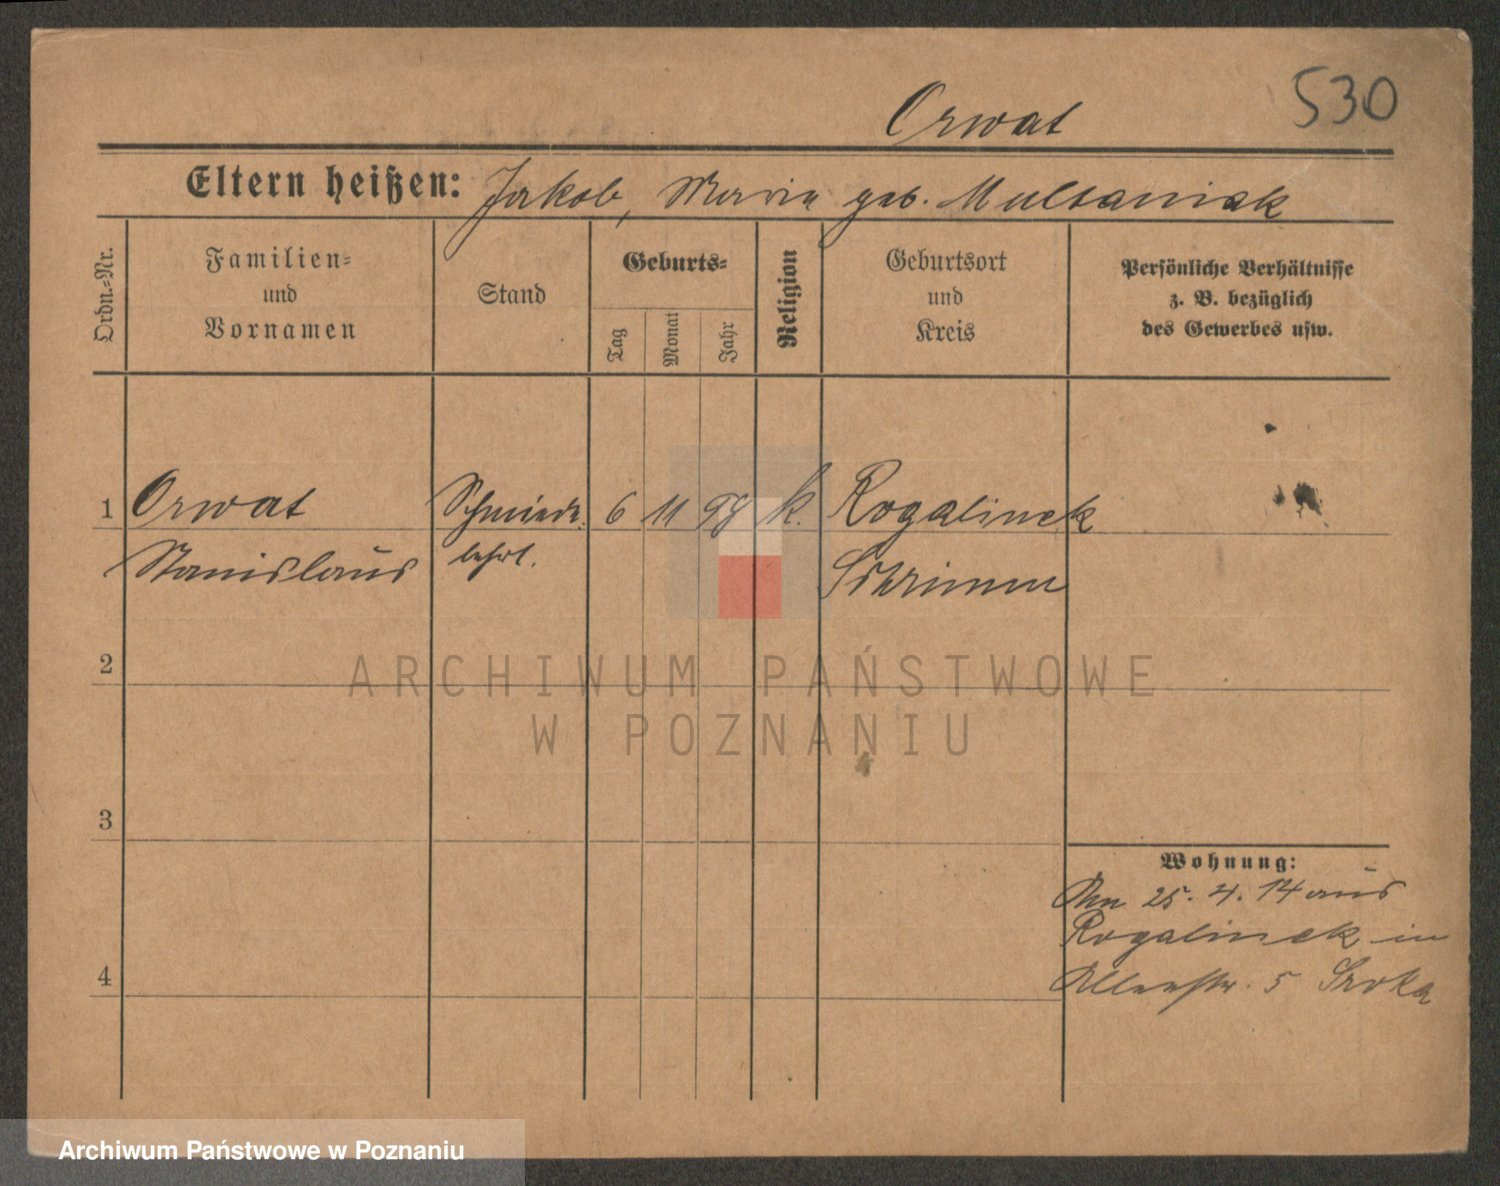 530
Orwat
Eltern heißen: Jakob, Maria geb. Multaniak
Ordn.-Nr.
Familien- und Vornamen
Stand
Geburts-
Tag
Monat
Jahr
Religion
Geburtsort und Kreis
Persönliche Verhältnisse z. B. bezüglich des Gewerbes usw.
1 Orwat Schmiede 6 11 98 k. Rogalinek
Stanislaus lehrl. Schrimm
2
ARCHIWUM PAŃSTWOWE
W POZNANIU
3
Wohnung:
25. 4. 14 aus
Rogalinek in
4
5 Sroka
Archiwum Państwowe w Poznaniu